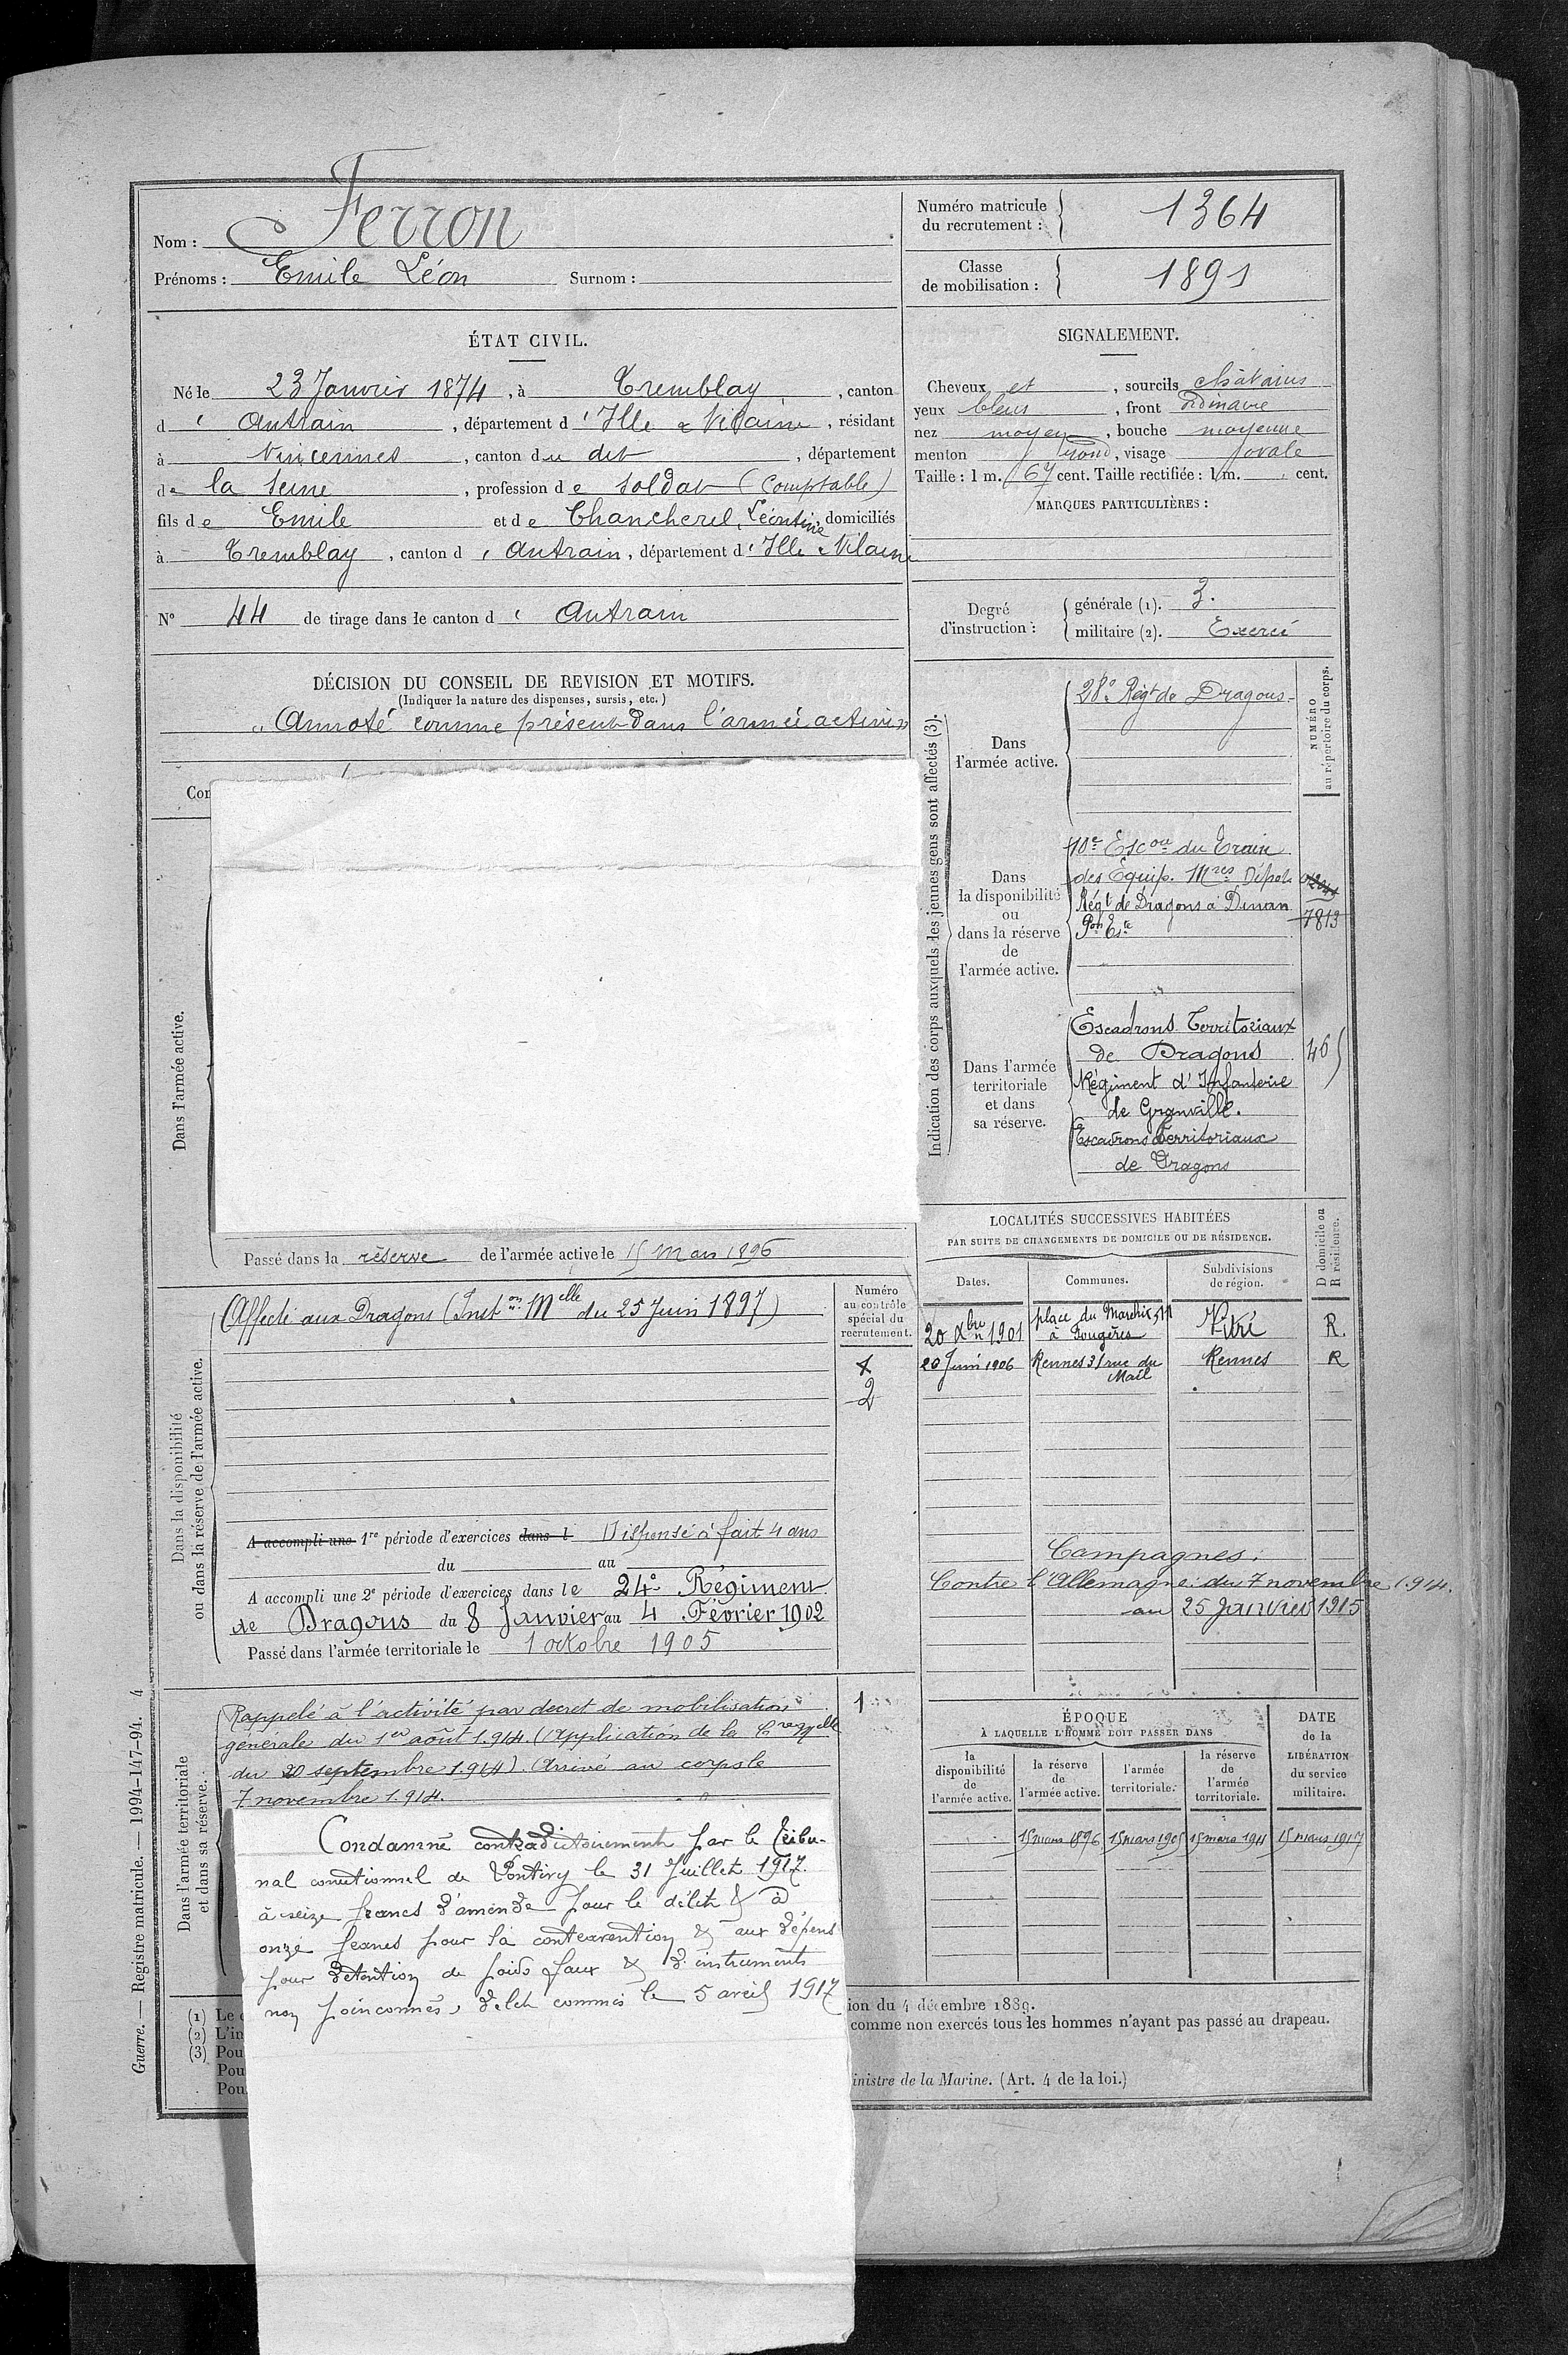 Nom : Ferron
Prénoms : Emile Léon Surnom :
Numéro matricule du recrutement : 1364
Classe de mobilisation : 1891
ÉTAT CIVIL.
Né le 23 Janvier 1874, à Tremblay, canton
d' Antrain, département d'Ille & Vilaine, résidant
à Vincennes, canton du dit, département
de la Seine, profession de Soldat (Comptable)
fils de Emile et de Chancherel, Léontine, domiciliés
à Tremblay, canton d' Antrain, département d'Ille & Vilaine
N° 44 de tirage dans le canton d' Antrain
SIGNALEMENT.
Cheveux et, sourcils châtains
yeux bleus, front ordinaire
nez moyen, bouche moyenne
menton rond, visage ovale
Taille : 1 m. 67 cent. Taille rectifiée : 1 m. cent.
MARQUES PARTICULIÈRES :
Degré d'instruction : générale (1). 3.
militaire (2). Exercé
DÉCISION DU CONSEIL DE REVISION ET MOTIFS.
(Indiquer la nature des dispenses, sursis, etc.)
"Annoté comme présent dans l'armée active"
Cor
Dans l'armée active.
Passé dans la réserve de l'armée active le 15 Mars 1896
Indication des corps auxquels les jeunes gens sont affectés (3).
NUMÉRO au répertoire du corps.
Dans l'armée active.
28e Régt de Dragons
Dans la disponibilité ou dans la réserve de l'armée active.
10e Escon du Train
des Equip. Mres Dépôt
Régt de Dragons à Dinan
7813
Dans l'armée territoriale et dans sa réserve.
Escadrons Territoriaux
de Dragons 46
Régiment d'Infanterie
de Granville.
Escadrons Territoriaux
de Dragons
LOCALITÉS SUCCESSIVES HABITÉES
PAR SUITE DE CHANGEMENTS DE DOMICILE OU DE RÉSIDENCE.
Dates. Communes. Subdivisions de région. D domicile ou R résidence.
20 Xbre 1901 place du Marchix, à Fougères Vitré R.
20 Juin 1906 Rennes 31 rue du Mail Rennes R
Campagnes :
Contre l'Allemagne du 7 novembre 1914.
au 25 Janvier 1915
Dans la disponibilité ou dans la réserve de l'armée active.
Numéro au contrôle spécial du recrutement.
Affecté aux Dragons (Inston Melle du 25 Juin 1897)
2
A accompli une 1re période d'exercices dans l Dispensé a fait 4 ans
du au
A accompli une 2e période d'exercices dans le 24e Régiment
de Dragons du 8 Janvier au 4 Février 1902
Passé dans l'armée territoriale le 1 octobre 1905
Dans l'armée territoriale et dans sa réserve.
Rappelé à l'activité par décret de mobilisation 1
générale du 1er août 1.914. (Application de la
du 20 septembre 1.914). Arrivé au corps le
7 novembre 1.914.
Condamné contradictoirement par le Tribu-
nal correctionnel de Pontivy le 31 Juillet 1917.
à seize francs d'amende pour le délit & à
onze francs pour la contravention & aux dépens
pour détention de poids faux & d'instruments
non poinçonnés, délit commis le 5 avril 1917
ÉPOQUE
À LAQUELLE L'HOMME DOIT PASSER DANS
la disponibilité de l'armée active. la réserve de l'armée active. l'armée territoriale. la réserve de l'armée territoriale.
DATE de la LIBÉRATION du service militaire.
15 mars 1896 15 mars 1905 15 mars 1911 15 mars 1917
(1) Le
(2) L'in
(3) Pou
Pou
Pou
ion du 4 décembre 1889.
comme non exercés tous les hommes n'ayant pas passé au drapeau.
inistre de la Marine. (Art. 4 de la loi.)
Guerre. — Registre matricule. — 1994-147-94. 4